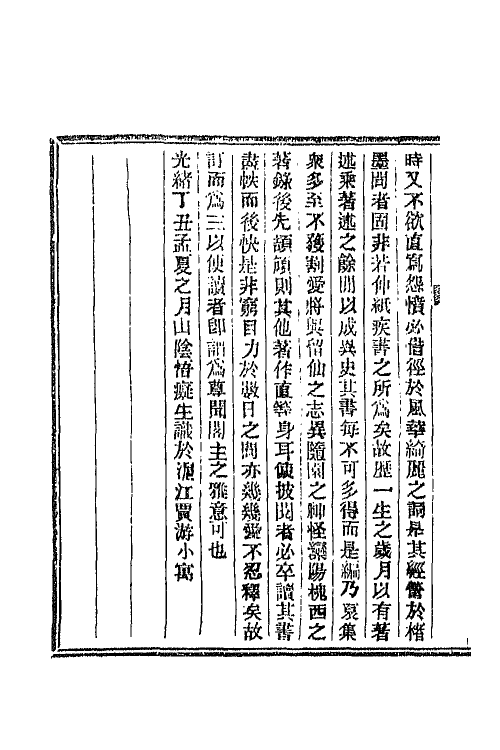 時又不欲直寫怨憤必借徑於風華綺麗之詞是其經營於楮
墨間者固非若伸紙疾書之所爲矣故歷一生之歲月以有著
述乘著述之餘閒以成異史其書每不可多得而是編乃裒集
衆多至不獲割愛將與留仙之志異隨園之神怪灤陽槐西之
著錄後先頡頏則其他著作直等身耳使披閱者必卒讀其書
盡帙而後快是非窮目力於數日之間亦幾幾愛不忍釋矣故
訂而爲三以便讀者卽謂爲尊聞閣主之雅意可也
光緒丁丑孟夏之月山陰悟癡生識於滬江賈游小寓